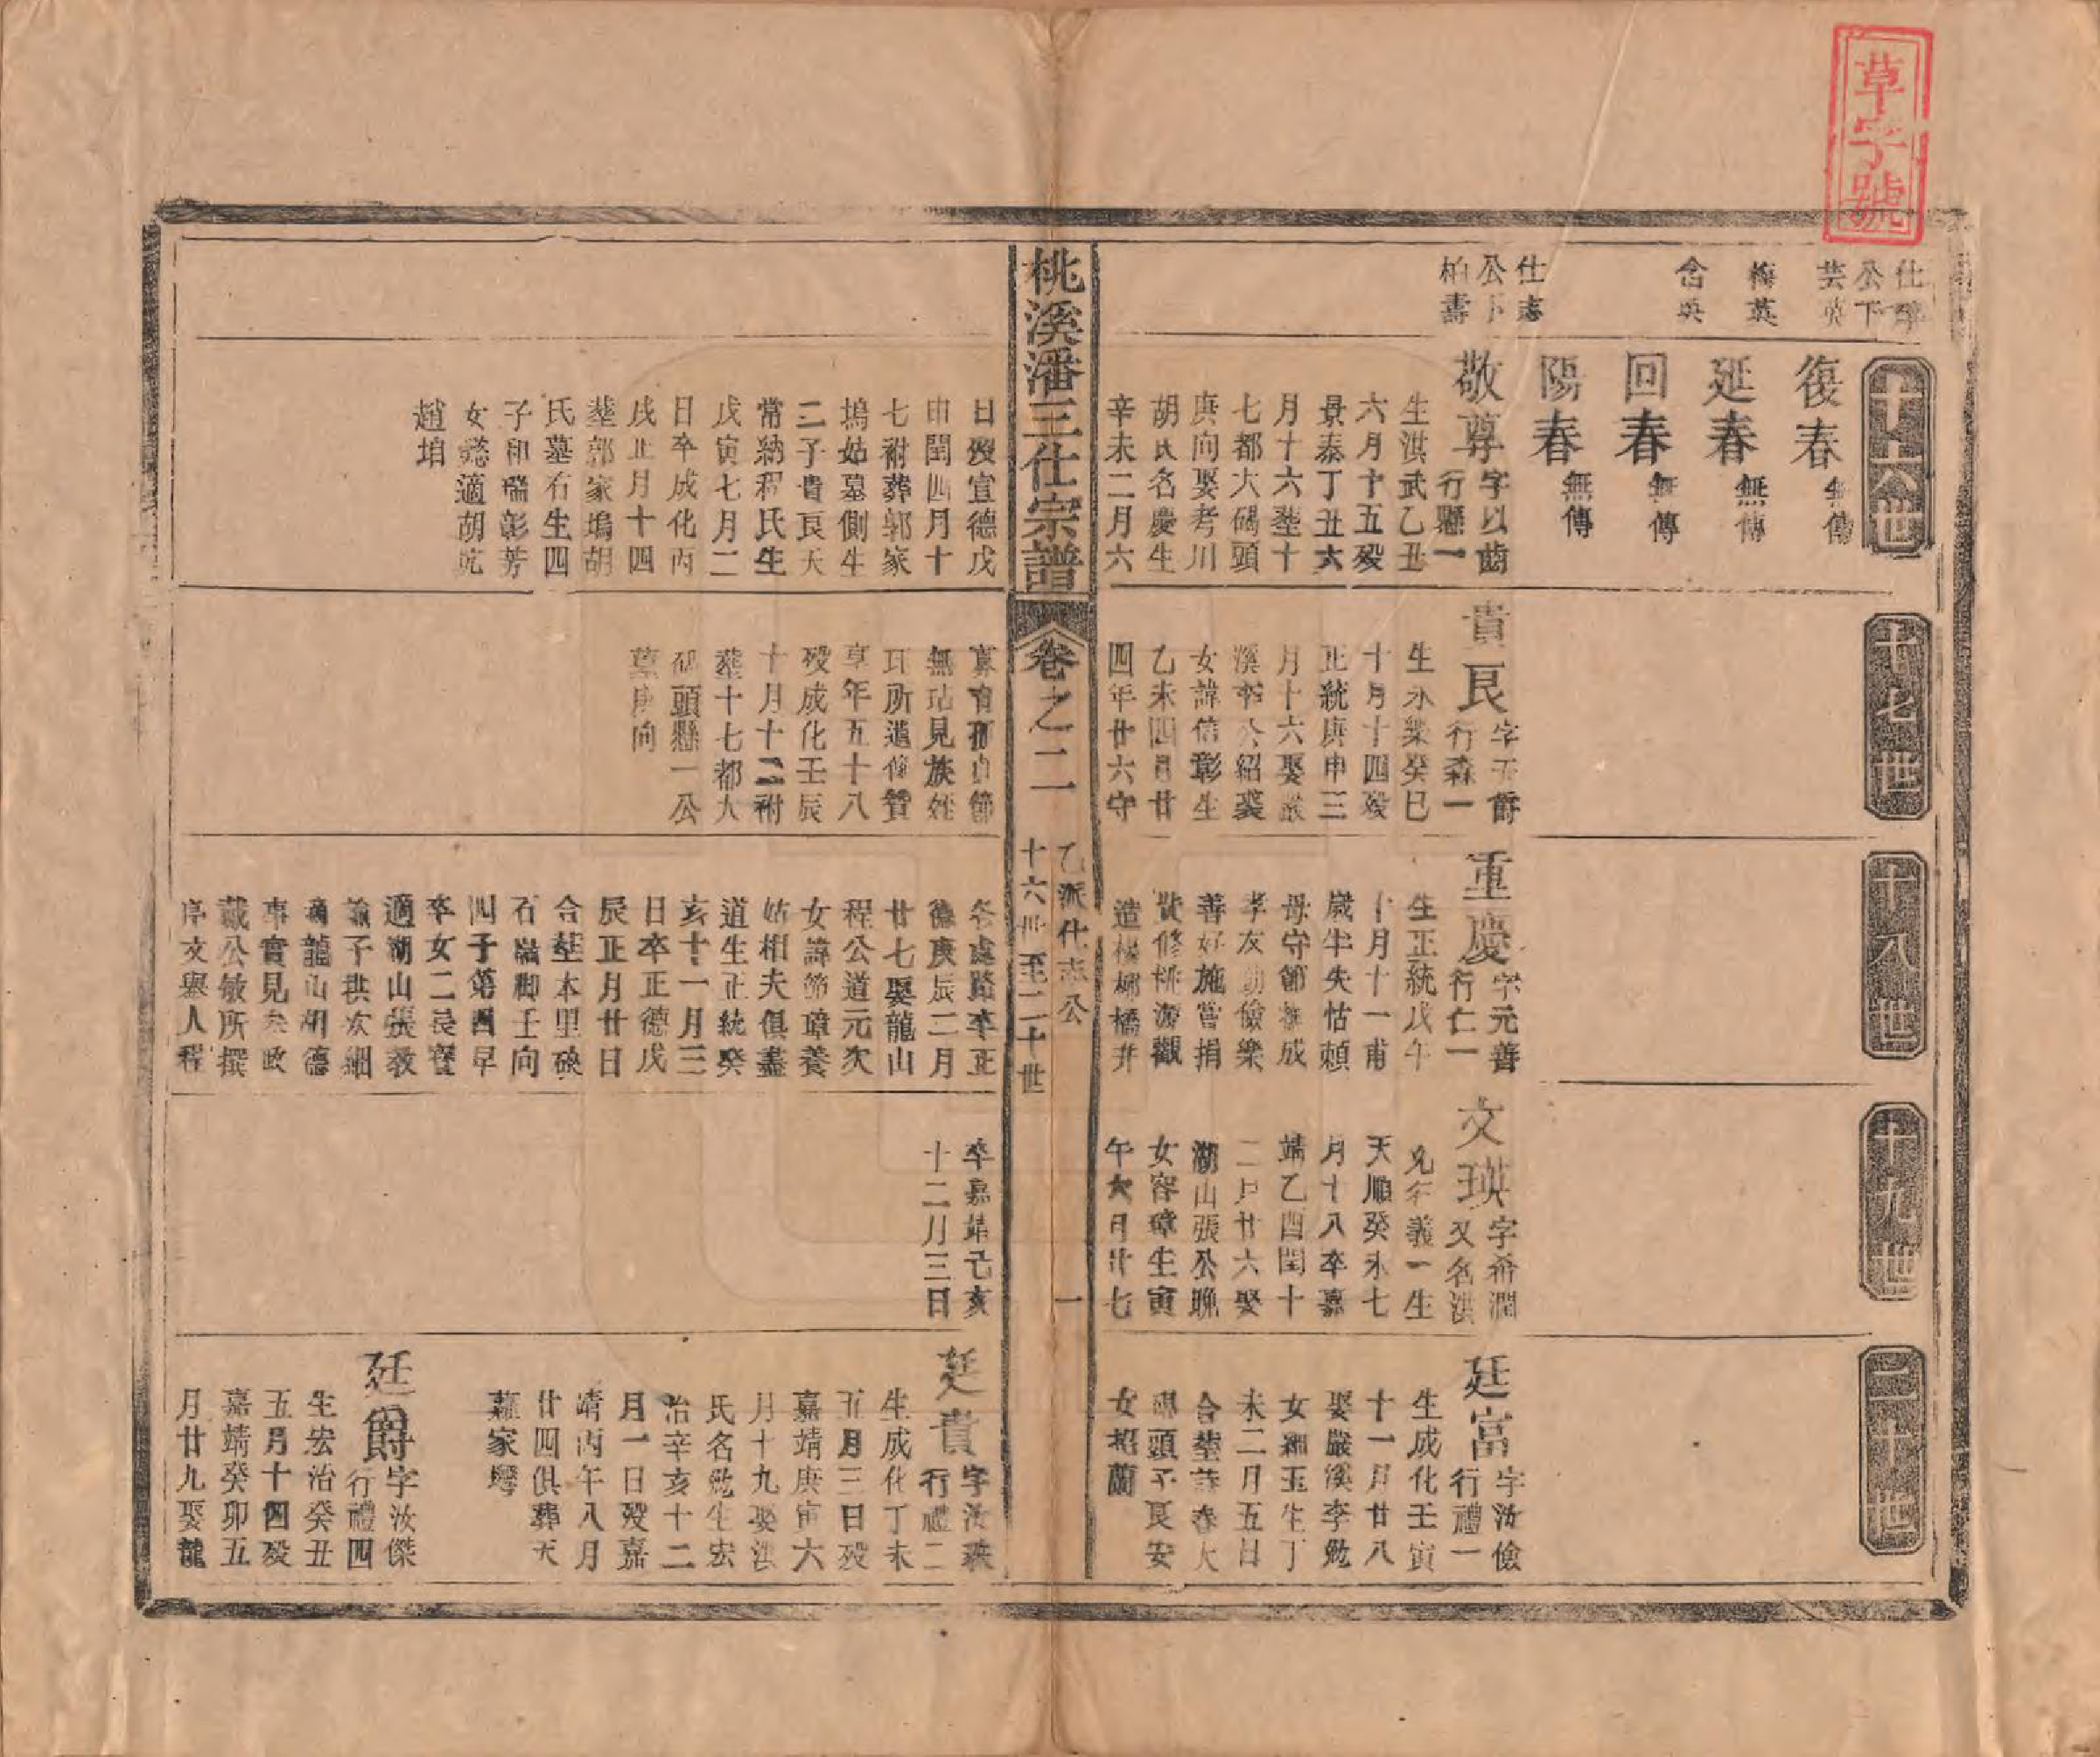 草字號
仕
公下
芸英
梅英
含英
仕志
公下
柏壽
十六世
復春
無傳
延春
無傳
回春
無傳
陽春
無傳
敬尊
字以齒
行懸一
生洪武乙丑
六月十五歿
景泰丁丑六
月十六塟十
七都大碣頭
庚向娶考川
胡氏名慶生
辛未二月六
日歿宣德戊
申閏四月十
七祔葬郭家
塢姑墓側生
二子貴良天
常納程氏生
戊寅七月二
日卒成化丙
戌正月十四
塟郭家塢胡
氏墓右生四
子和瑞彰芳
女懿適胡
趙
十七世
貴良
字天爵
行森一
生永樂癸巳
十月十四歿
正統庚申三
月十六娶嚴
溪李公紹裘
女諱信彰生
乙未四月廿
四年廿六守
節
無玷見族
所遺像贊
享年五十八
歿成化壬辰
十月十二祔
塟十七都大
碣頭懸一公
墓庚向
十八世
重慶
字元善
行仁一
生正統戊午
十月十一甫
歲半失怙賴
母守節撫成
孝友勤儉樂
善好施嘗捐
貲修桃源觀
造楊柳橋并
各處路卒正
德庚辰二月
廿七娶龍山
程公道元次
女諱節璋養
姑相夫俱盡
道生正統癸
亥十一月三
日卒正德戊
辰正月廿日
合塟本里碤
石嶺脚壬向
四子第四早
卒女二長寶
適湖山張敦
次細
適龍山胡德
事實見
戴公敏所撰
序文舉人程
十九世
文瑛
字希潤
又名洪
行義一生
天順癸未七
月十八卒嘉
靖乙酉閏十
二月廿六娶
湖山張公聰
女容璋生寅
午六月廿七
卒嘉靖己亥
十二月三日
二十世
廷富
字汝儉
行禮一
生成化壬寅
十一月廿八
娶嚴溪李勉
女細玉生丁
未二月五日
合塟詩春大
碣頭子良安
女招蘭
廷貴
字汝
行禮二
生成化丁未
五月三日歿
嘉靖庚寅六
月十九娶洪
氏名勉生宏
治辛亥十二
月一日歿嘉
靖丙午八月
廿四俱葬天
蕭家塆
廷爵
字汝傑
行禮四
生宏治癸丑
五月十四歿
嘉靖癸卯五
月廿九娶龍
桃溪潘三仕宗譜
卷之二
乙派仕志公
十六世至二十世
一